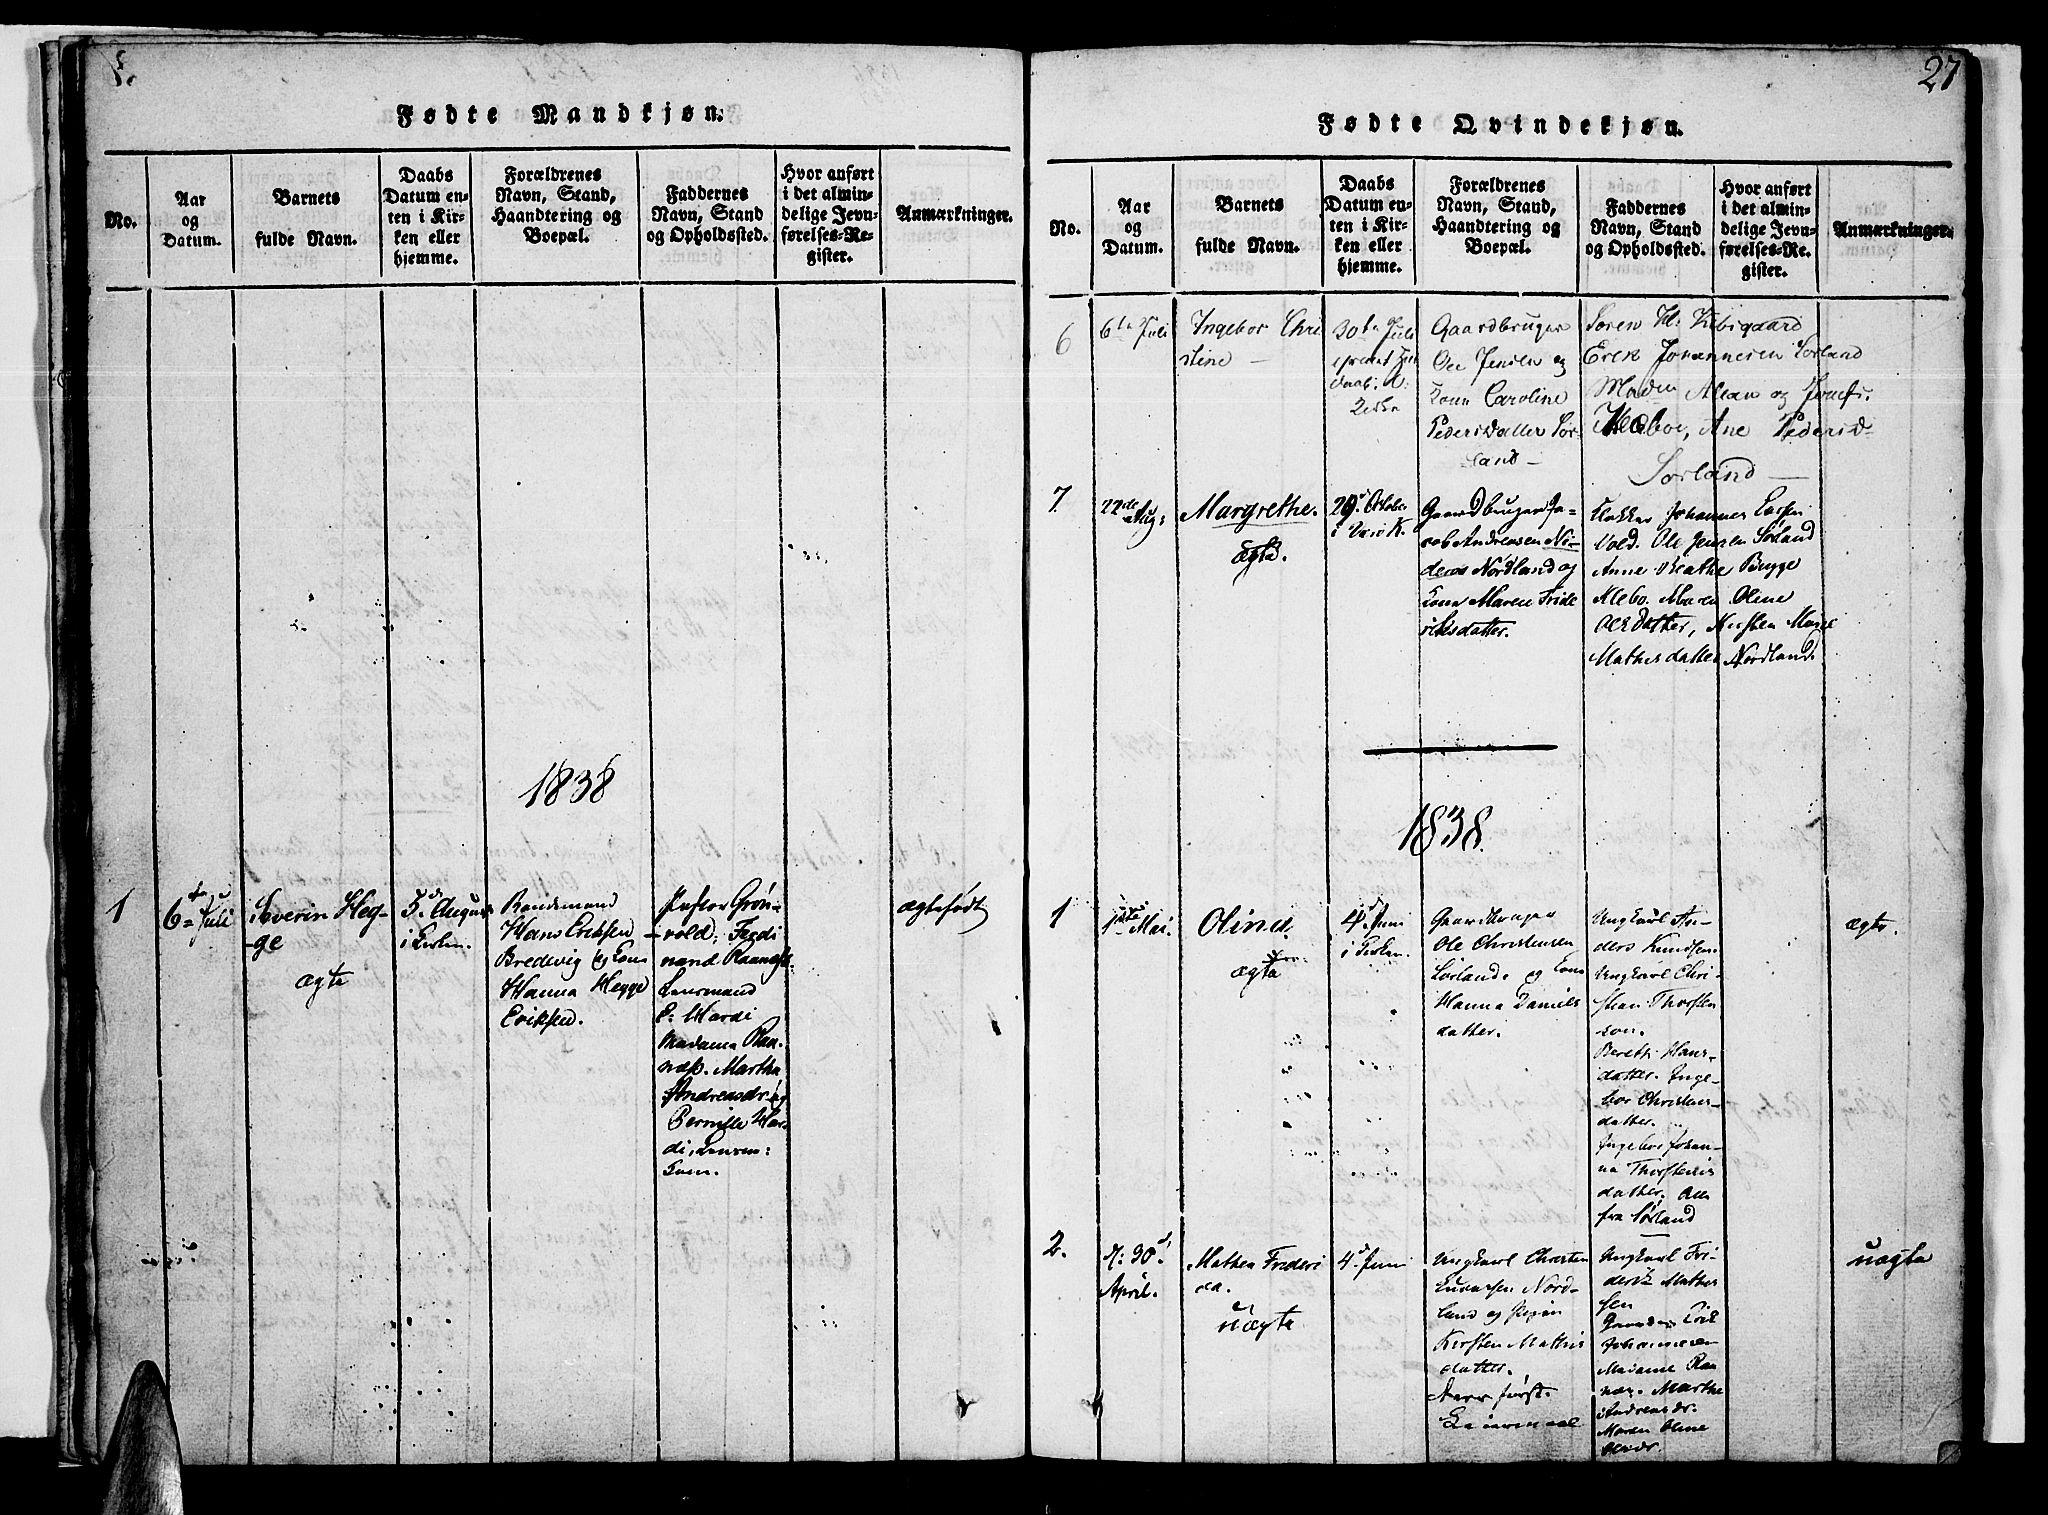 27
Fødte Mandkjøn.
No.
Aar
og
Datum.
Barnets
fulde Navn.
Daabs
Datum en-
ten i Kir-
ken eller
hjemme.
Forældrenes
Navn, Stand,
Haandtering og
Boepæl.
Faddernes
Navn, Stand
og Opholdssted.
Hvor anført
i det almin-
delige Jevn-
førelses-Re-
gister.
Anmærkninger.
1838
1
6te Juli
Severin Heg-
ge
ægte
5. August
i Kirken.
Handsmand
Hans Eriksen
Bredevig og Kone
Hanna Hegge
Eriksen.
Pastor Grøn-
vold, Ferdi
nand Raanæss.
Lensmand
P. Hardi
Madame Raa-
næss. Martha
Andreasdr. og
Pernille Har
di, Lensm:
Kone.
ægtefødt
Fødte Qvindekjøn.
No.
Aar
og
Datum.
Barnets
fulde Navn.
Daabs
Datum en-
ten i Kir-
ken eller
hjemme.
Forældrenes
Navn, Stand,
Haandtering og
Boepæl.
Faddernes
Navn, Stand
og Opholdssted.
Hvor anført
i det almin-
delige Jevn-
førelses-Re-
gister.
Anmærkninger.
6
6te Juli
Ingebor Chri
stine
30te Juli
Gaardbruger
Ole Jensen og
Kone Caroline
Pedersdatter Sør-
land
Søren
Erek Johannesen Sorland
Ane Pedersd
Sorland
7.
22de Aug:
Margrethe.
ægte.
29. October
i Værø K.
Gaardbruger Ja-
cob Andreasen Ni-
deros Nordland og
Kone Maren Fride
riksdatter.
Klokker Johannes Larsen
Vold. Ole Jensen Sørland
Anne Beathe Bugge
Klebo. Maren Oline
Olsdatter, Kirsten Marie
Mathisdatter Nordland
1838.
1
1ste Mai.
Oline.
ægte
4. Juni
i Kirken.
Gaardbruger
Ole Christensen
Sørland og Kone
Hanna Daniels
datter.
Ungkarl An-
ders Knudsen
Ungkarl Chri-
stian Thorsten
son.
Berett. Hans-
datter. Inge-
bor Christens-
datter.
Ingebor Johan-
na Thorstens
datter. Alle
fra Sørland
ægte.
2.
d: 30.
April.
Mathea Frederi
ca.
uægte
4. Juni
Ungkarl Christen
Lursen Nord-
land og Pigen
Kirsten Mathis
datter.
første
Leiermaal
Ungkarl Fri-
derik Mathis
sen
Gaardm. Erik
Johannesen
Madame Raa
næs. Marthe
Andreasdr.
Maren Oline
Olsdr.
uægte